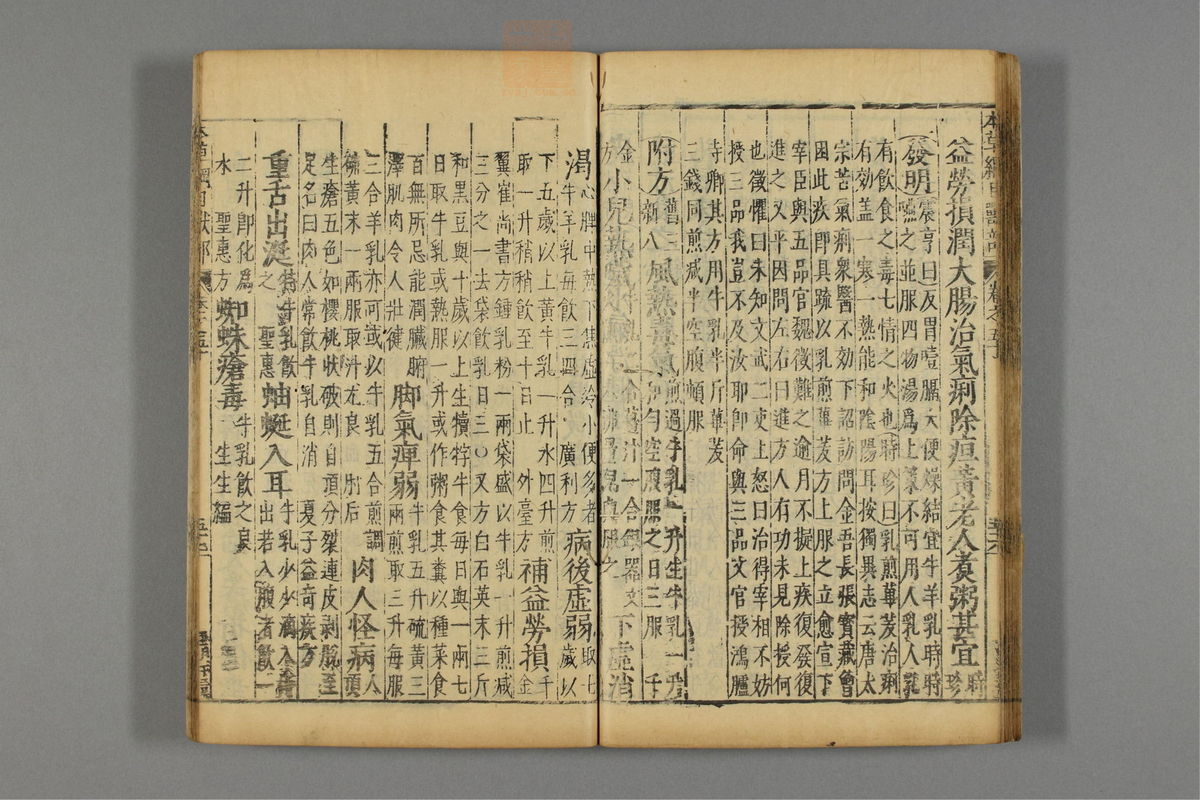 益勞損潤大腸治氣痢除疸黃老人煮粥甚宜時珍
發明震亨曰反胃噎膈大便燥結宜牛羊乳時時
嚥之並服四物湯爲上策不可用人乳人乳
有飲食之毒七情之火也時珍曰乳煎蓽茇治痢
有効蓋一寒一熱能和陰陽耳按獨異志云唐太
宗苦氣痢衆醫不効下詔訪問金吾長張寶藏曾
困此疾即具疏以乳煎蓽茇方上服之立愈宣下
宰臣與五品官魏徵難之逾月不擬上疾復發復
進之又平因問左右曰進方人有功未見除授何
也徵懼曰未知文武二吏上怒曰治得宰相不妨
授三品我豈不及汝耶即命與三品文官授鴻臚
寺卿其方用牛乳半斤蓽茇
三錢同煎減半空腹頓服
附方舊三新八風熱毒氣煎過牛乳一升生牛乳一升
和勻空腹服之日三服 千
金方小兒熱噦牛乳二合薑汁一合銀器文
下虛消
渴心脾中熱下焦虛冷小便多者
牛羊乳每飲三四合 廣利方病後虛弱取七
歲以
下五歲以上黃牛乳一升水四升煎
取一升稍稍飲至十日止 外臺方補益勞損千
金
翼崔尚書方鍾乳粉一兩袋盛以牛乳一升煎減
三分之一去袋飲乳日三〇又方白石英末三斤
和黑豆與十歲以上生犢牸牛食每日與一兩七
日取牛乳或熱服一升或作粥食其糞以種菜食
百無所忌能潤臟腑
澤肌肉令人壯健脚氣痺弱牛乳五升硫黃三
兩煎取三升每服
三合羊乳亦可或以牛乳五合煎調
硫黃末一兩服取汗尤良 肘后肉人怪病人
頂
生瘡五色如櫻桃狀破則自頂分裂連皮剥脫至
足名曰肉人常飲牛乳自消 夏子益奇疾方
重舌出涎特牛乳飲
之 聖惠蚰蜒入耳牛乳少少滴入
出若入腹者飲一
二升即化爲
水 聖惠方蜘蛛瘡毒牛乳飲之良
生生編